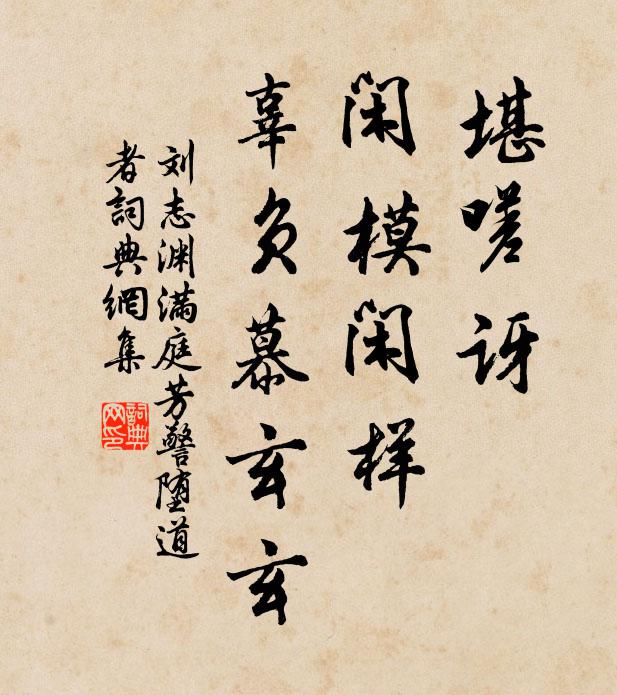 堪嗟讶
闲模闲样
辜负慕玄玄
刘志渊满庭芳警堕道
者詞典網集
詞典
网印